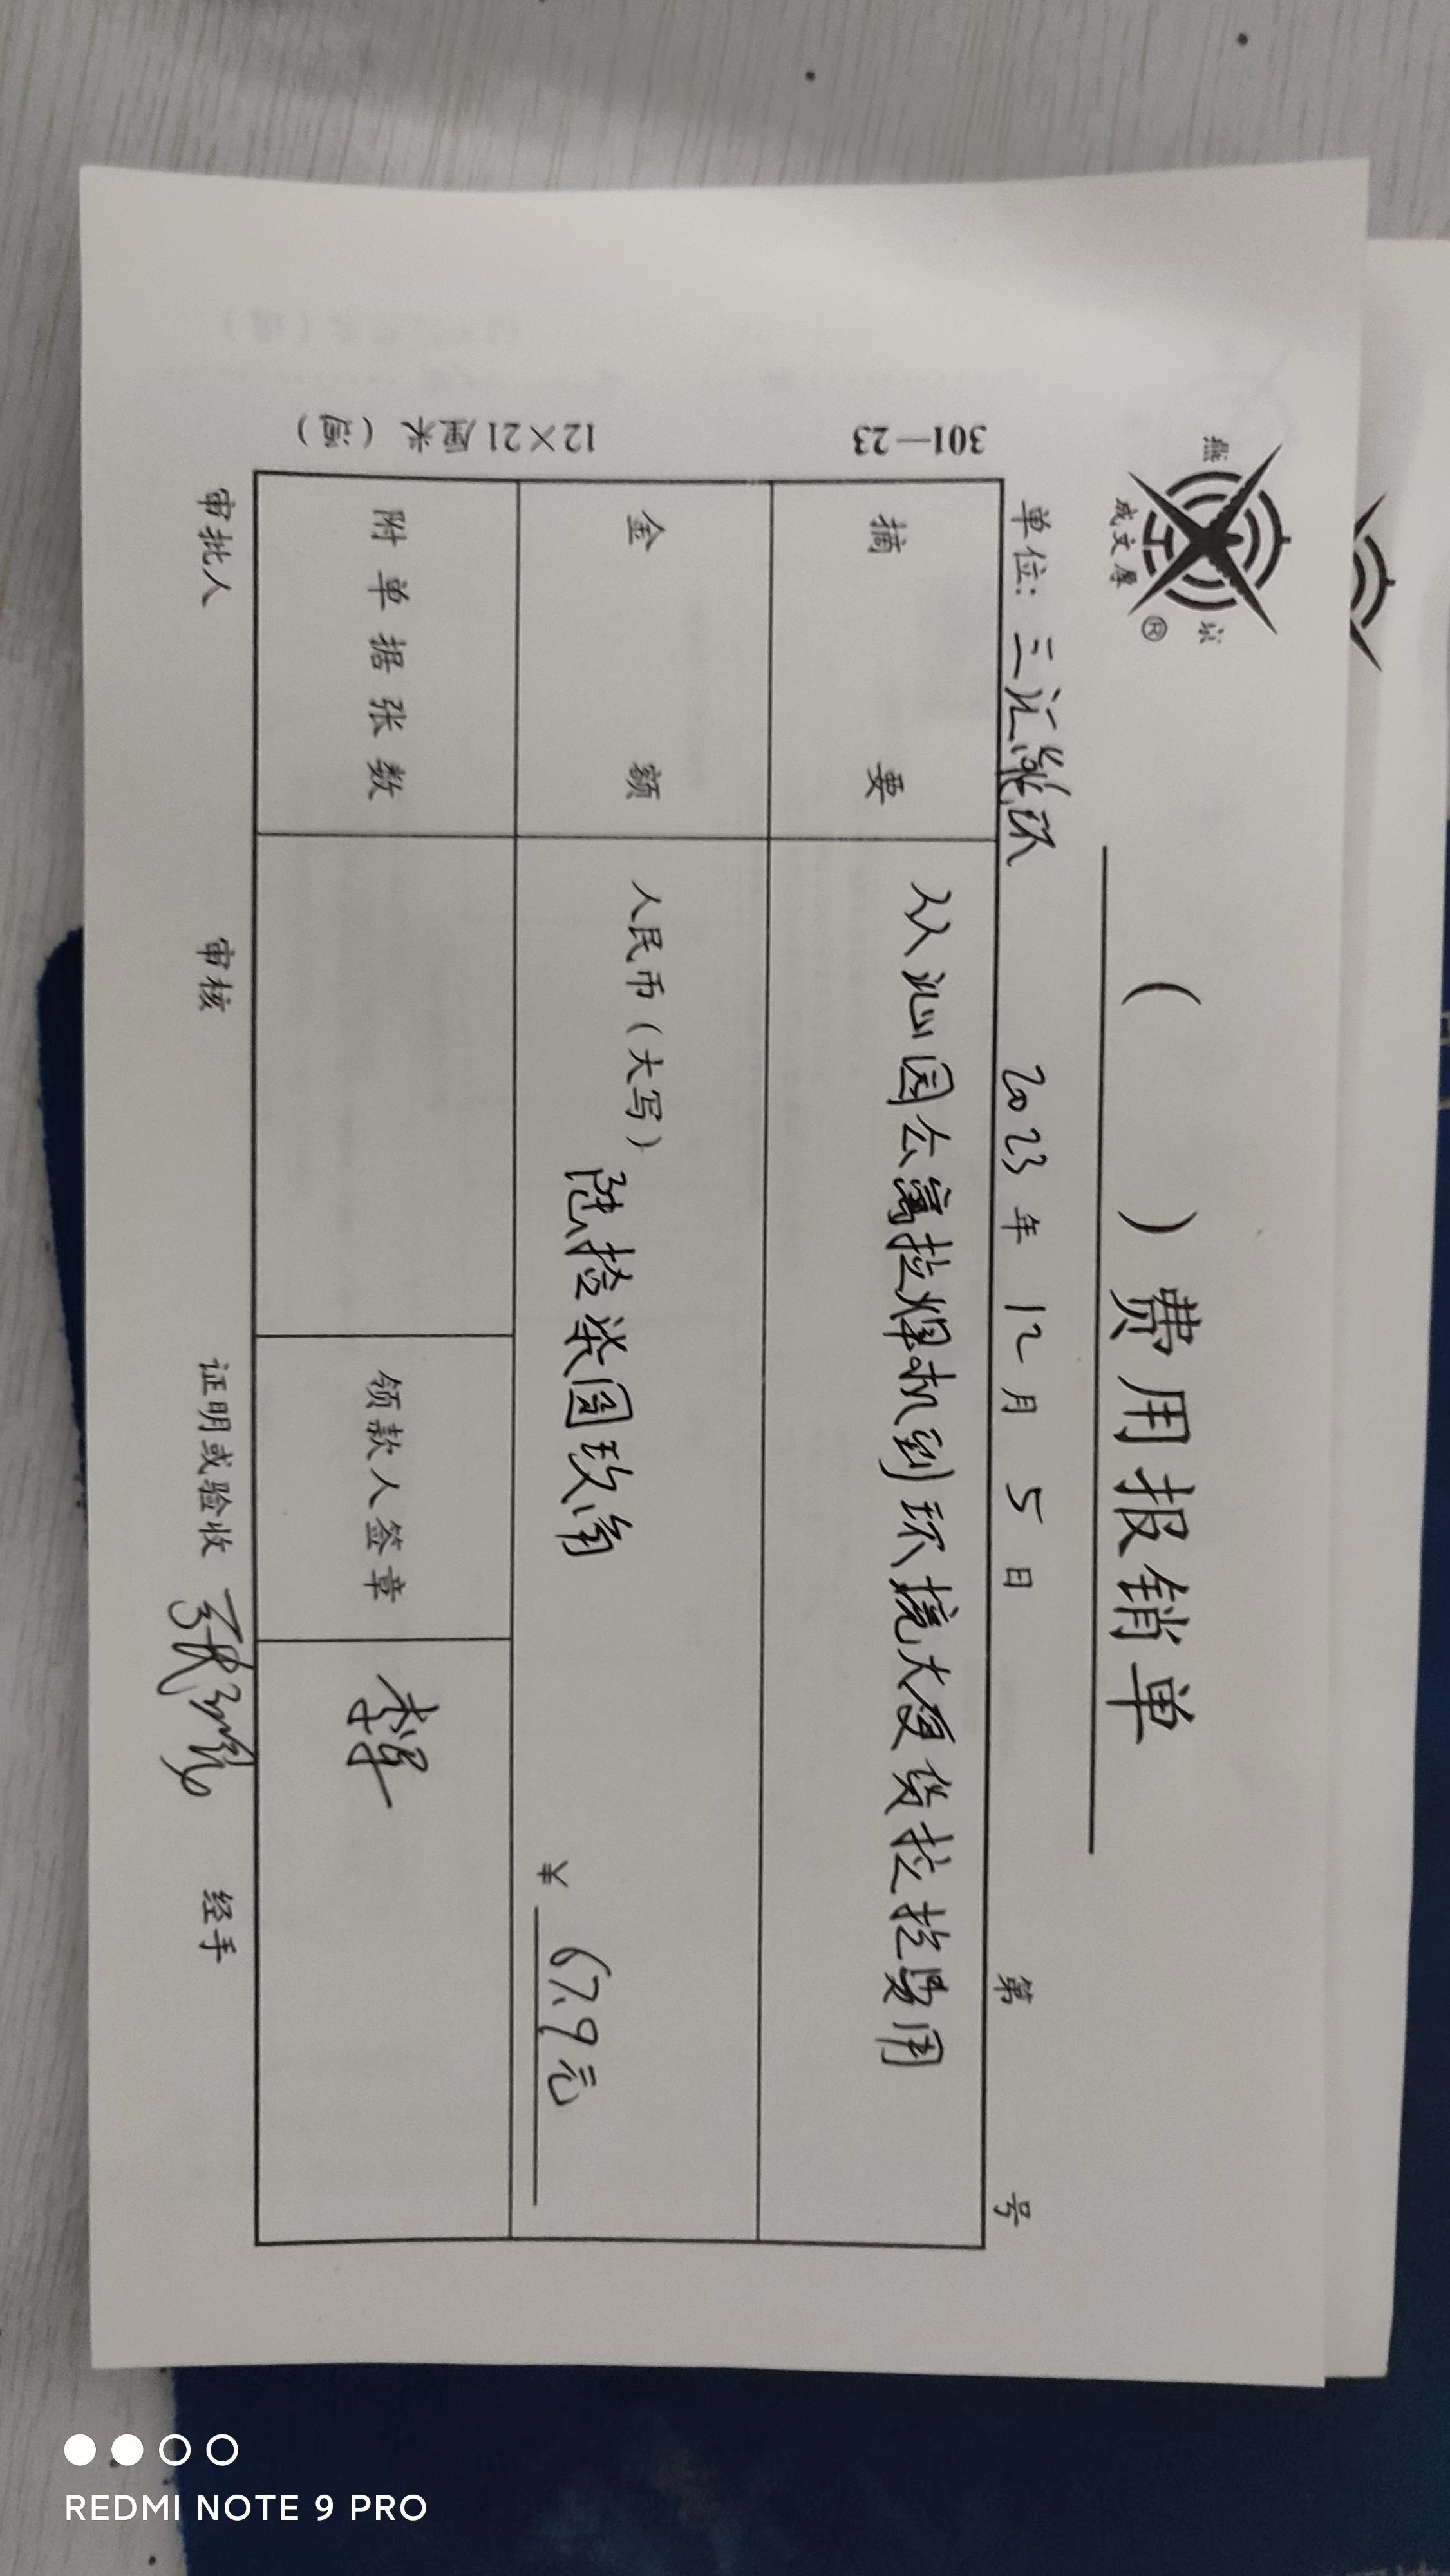 燕 京
成文厚 ®
( ) 费用报销单
单位: 三汇 2023年12月5日 第 号
摘要 从沁园公寓拉焊机到环境大厦货拉拉费用
金额 人民币(大写) 陆拾柒圆玖角 ¥ 67.9元
附单据张数 领款人签章 李军
审批人 审核 证明或验收 张 经手
301—23
12×21厘米(通)
REDMI NOTE 9 PRO